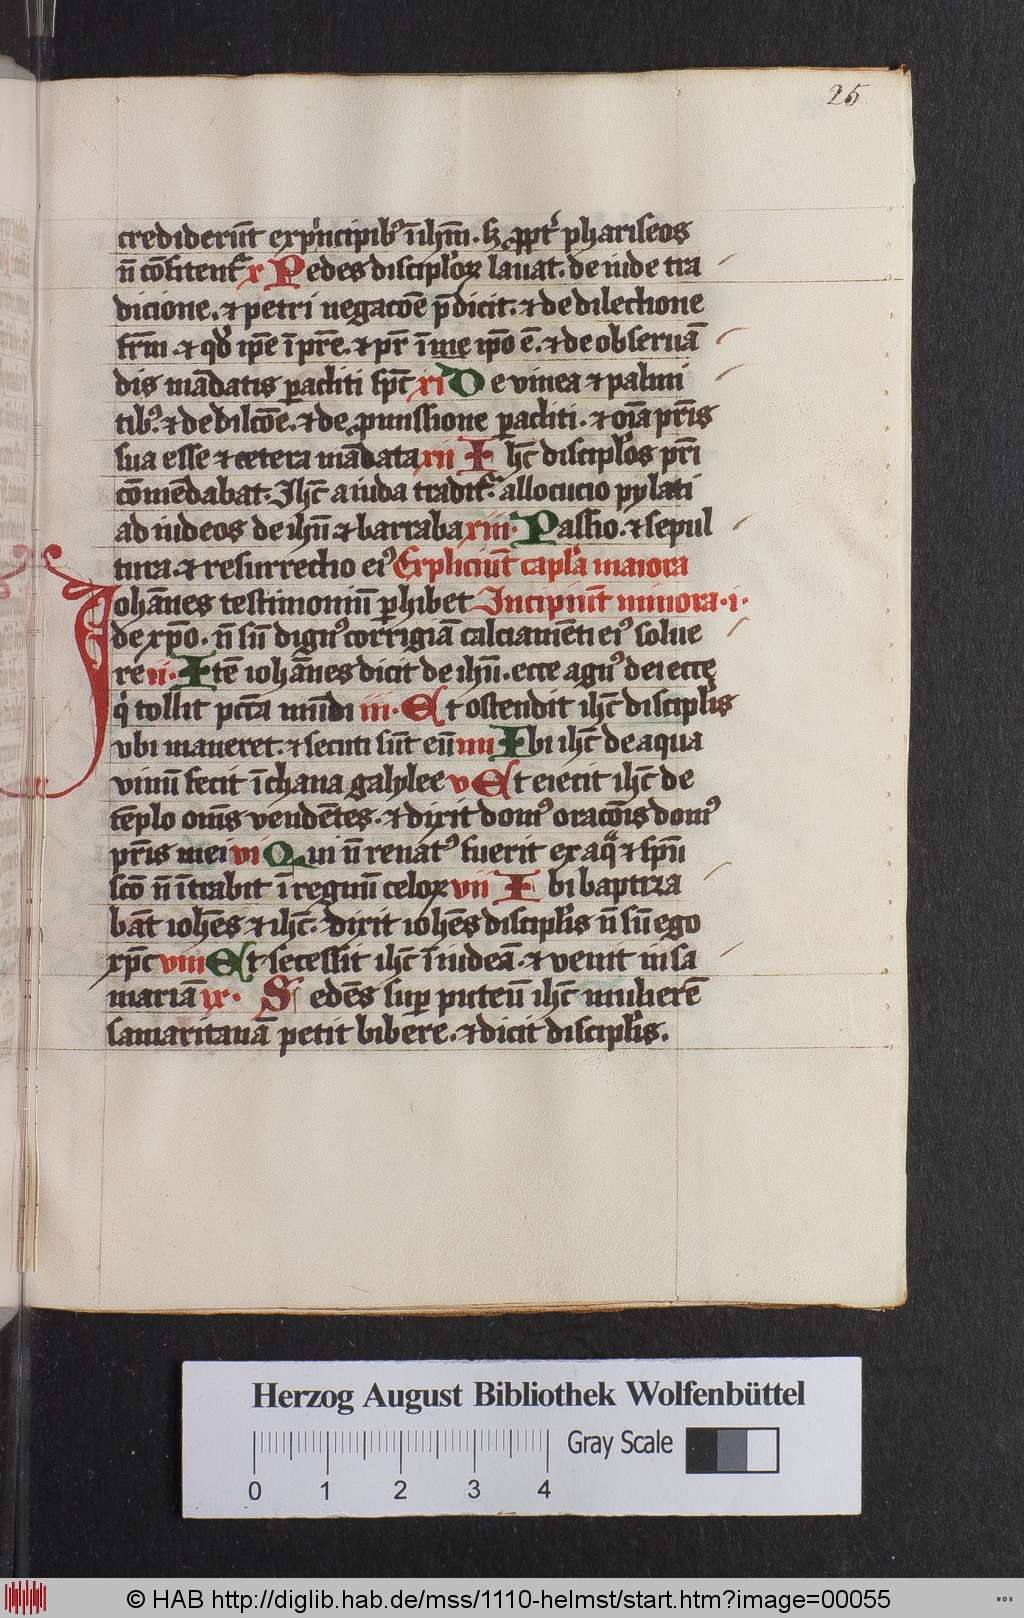 25
crediderūt exp̄ncipib9 īihm̄. sꝫ ꝓpt̄ phariseos
n̄ cōfitent᷑ x Pedes disciplor̄ lauat. de iude tra
dicione. ⁊ petri negacōe p̄dicit. ⁊ de dilectione
frm̄. ⁊ qd̄ ip̄e ī pr̄e. ⁊ pr̄ ī me ip̄o ē. ⁊ de obseruā
dis mādatis ꝑacliti sp̄c xi De vinea ⁊ palmi
tib9. ⁊ de dilcōe. ⁊ de ꝓmissione ꝑacliti. ⁊ oīa pr̄is
sua esse ⁊ cetera mādata xii Ihc̄ disciplos pr̄i
cōmēdabat. Ihc̄ a iuda tradit᷑. allocucio pylati
ad iudeos de ihū ⁊ barraba xiii. Passio. ⁊ sepul
tura. ⁊ resurrectio ei9 Expliciūt capl̄a maiora
Johānes testimoniū ꝑhibet Incipiūt minora. i.
de xp̄o. n̄ sū dign9 corrigiā calciamēti ei9 solue
re ii. Itē iohānes dicit de ihū. ecce agn9 dei ecce
q̇ tollit pctā mūdi iii. Et ostendit ihc̄ disciplis
vbi maneret. ⁊ secuti sūt eū iiii Ibi ihc̄ de aqua
vinū fecit ī chana galylee v Et eiecit ihc̄ de
tēplo om̄s vendētes. ⁊ dixit dom9 oracōis dom9
pr̄is mei vi Qui n̄ renat9 fuerit ex aq̄ ⁊ sp̄u
scō n̄ ītrabit ī regnū celor̄ vii Ibi baptiza
bāt iohēs ⁊ ihc̄. dixit iohēs disciplis n̄ sū ego
xp̄c viii Et secessit ihc̄ ī iudeā. ⁊ venit in sa
mariā ix. Sedēs sup̄ puteū ihc̄ mulierē
samaritanā petit bibere. ⁊ dicit disciplis.
Herzog August Bibliothek Wolfenbüttel
Gray Scale
0 1 2 3 4
© HAB http://diglib.hab.de/mss/1110-helmst/start.htm?image=00055